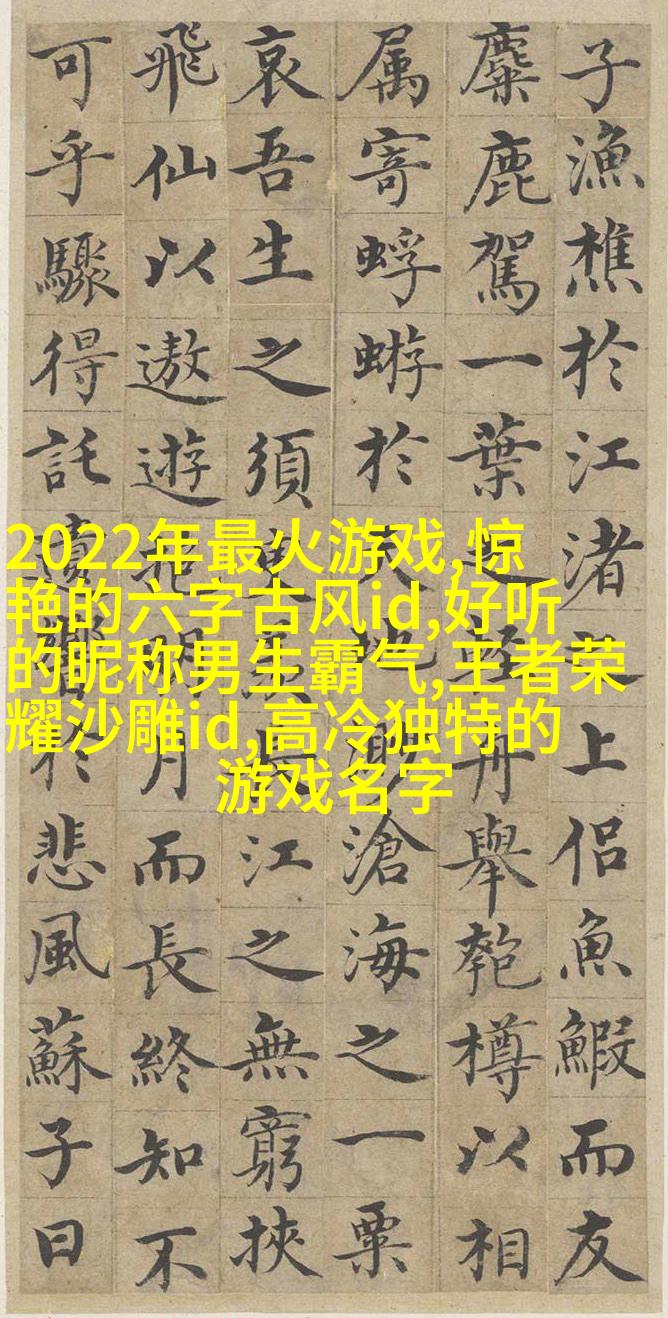 子漁樵於江渚之上侣魚鰕而友
麋鹿駕一葉之輕舟舉匏樽以相
属寄蜉蝣於天地眇滄海之一粟
哀吾生之須臾羨長江之無窮挾
飛仙以遨遊抱明月而長終知不
可乎驟得託遺響於悲風蘇子曰
2022年最火游戏,惊
艳的六字古风id,好听
的昵称男生霸气,王者荣
耀沙雕id,高冷独特的
游戏名字